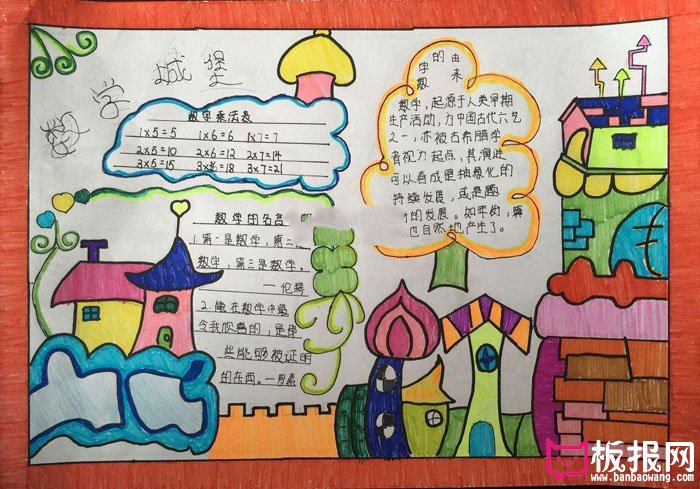 数学城堡
数学乘法表
1×5=5 1×6=6 1×7=7
2×5=10 2×6=12 2×7=14
3×5=15 3×6=18 3×7=21
数学的名言
1.第一是数学,第二
数学,第三是数学。
一伦琴
2.
在数学中最
令我欣喜的,是
些能够被证明
的东西。一罗素
数学的由来
数学,起源于人类早期
生产活动,为中国古代六艺
之一,亦被古希腊学
者视为起点、其演进
可以看成是抽象化的
持续发展,或是题
的发展。
也自然地产生了。
板报网
www.banbaowang.com